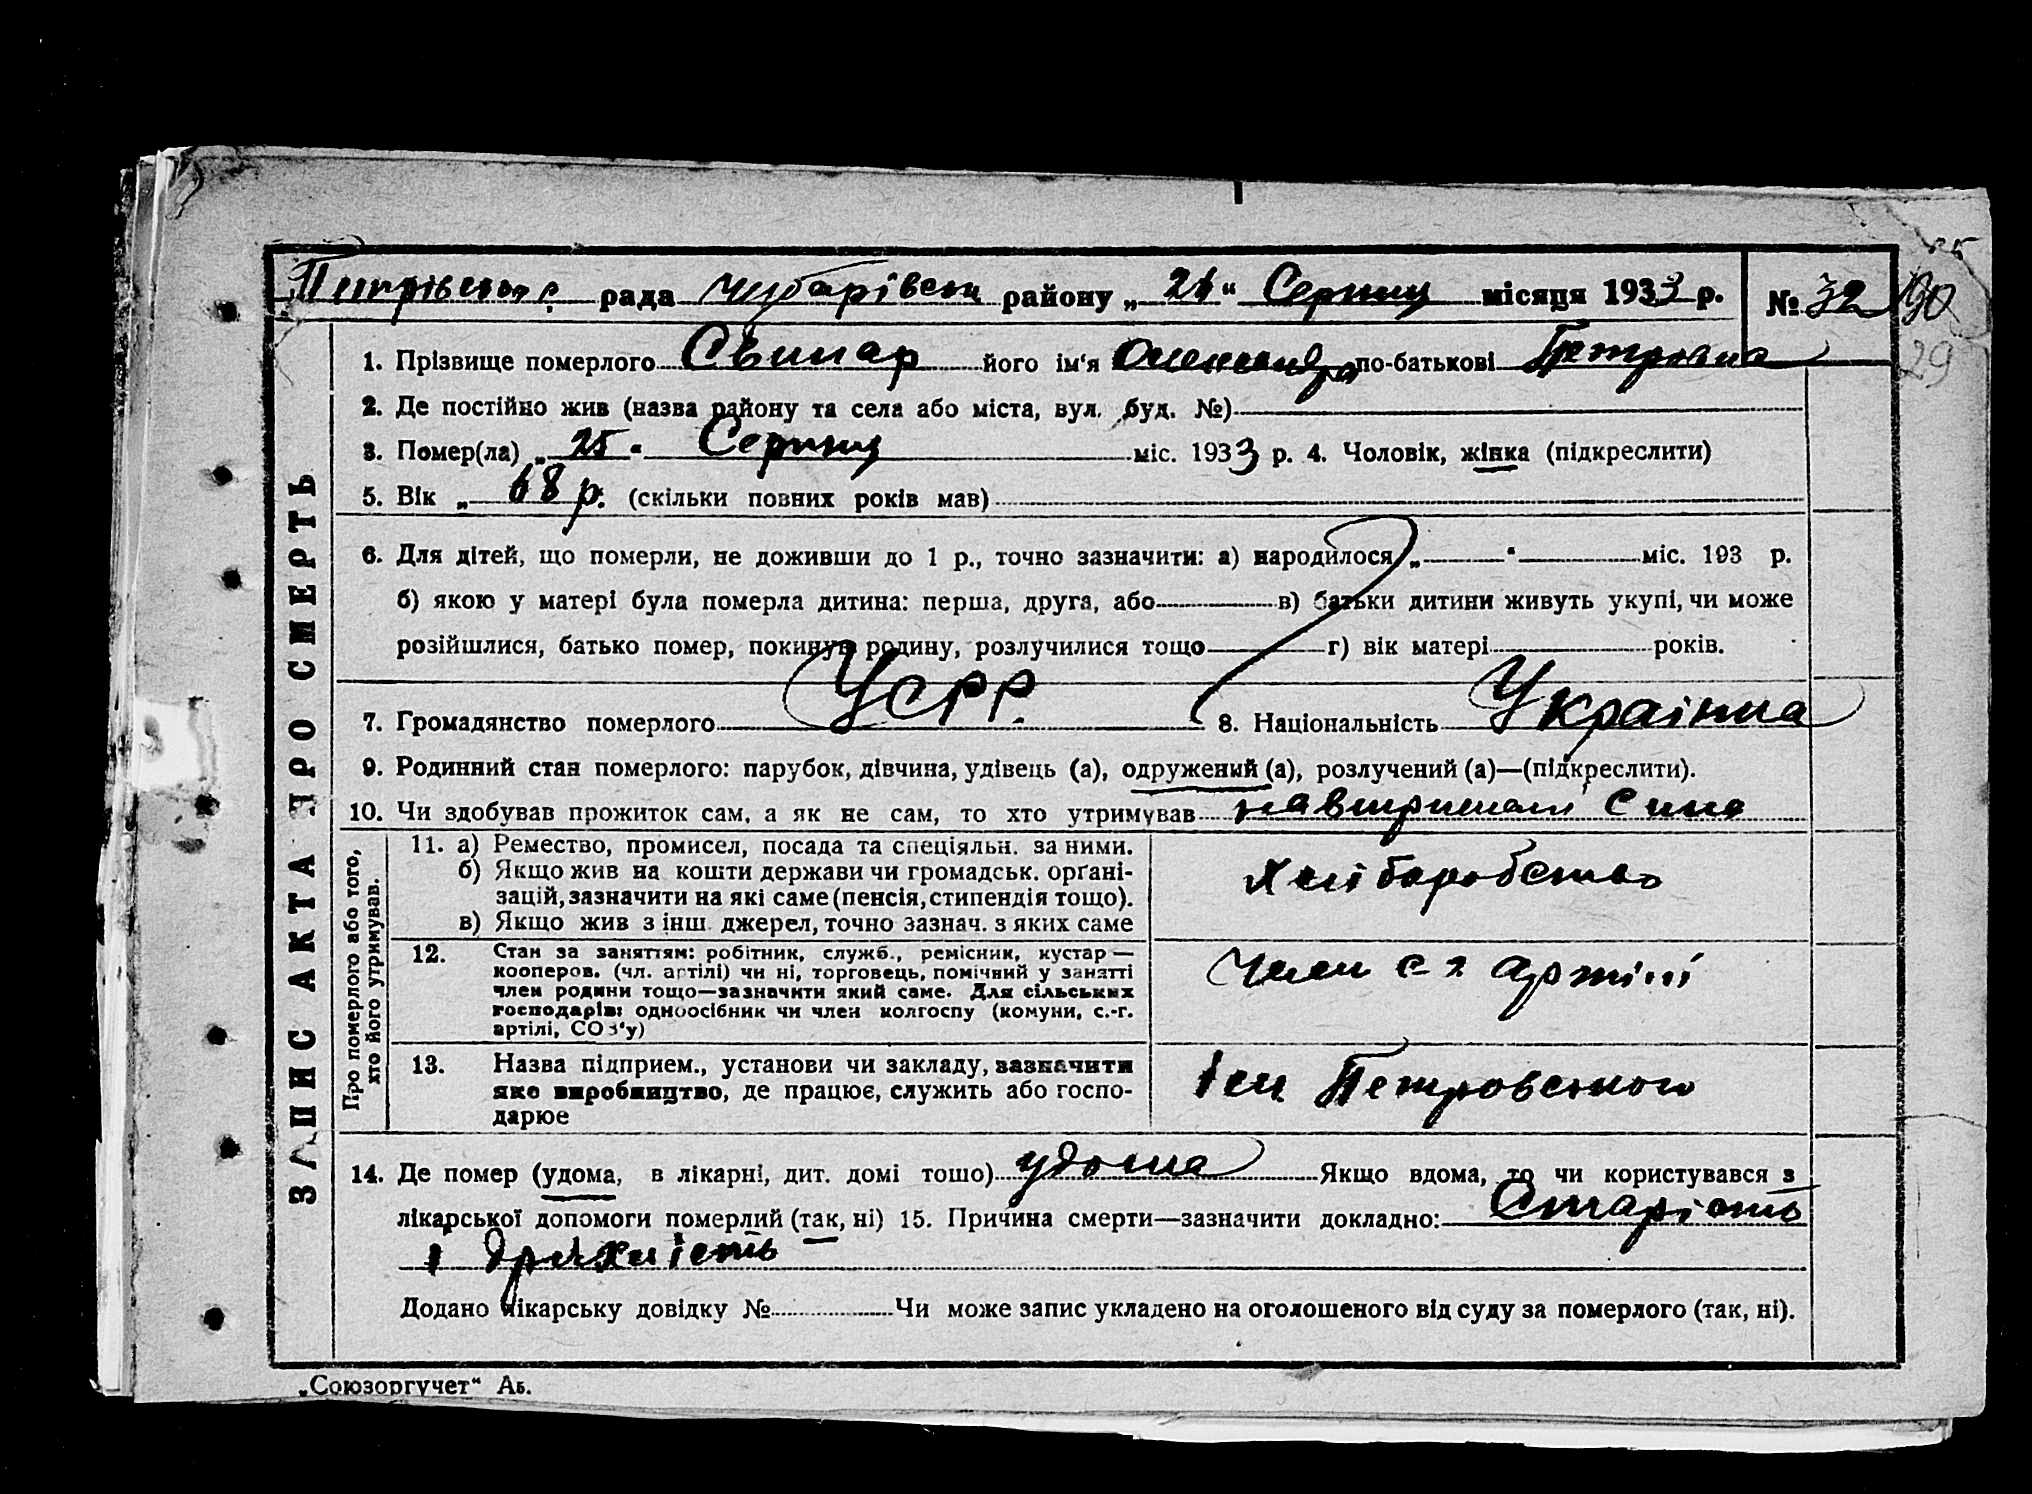 Петрівська с. рада Чубарівськ району „ 26 “ Серпня місяця 1933 р. № 32 90
29
ЗАПИС АКТА ПРО СМЕРТЬ
1. Прізвище померлого Свинар його ім‘я Олександра по-батькові Петровна
2. Де постійно жив (назва району та села або міста, вул. буд. №)
3. Помер(ла) „ 25 “ Серпня міс. 1933 р. 4. Чоловік, жінка (підкреслити)
5. Вік „ 68 р. (скільки повних років мав)
6. Для дітей, що померли, не доживши до 1 р., точно зазначити: а) народилося „ “ міс. 193 р.
б) якою у матері була померла дитина: перша, друга, або в) батьки дитини живуть укупі, чи може
розійшлися, батько помер, покинув родину, розлучилися тощо г) вік матері років.
7. Громадянство померлого УСРР. 8. Національність Українка
9. Родинний стан померлого: парубок, дівчина, удівець (а), одружений (а), розлучений (а)—(підкреслити).
10. Чи здобував прожиток сам, а як не сам, то хто утримував на втриманні сина
Про померлого або того,
хто його утримував.
11. а) Ремество, промисел, посада та спеціяльн. за ними.
б) Якщо жив на кошти держави чи громадськ. орґані-
зацій, зазначити на які саме (пенсія, стипендія тощо).
в) Якщо жив з інш. джерел, точно зазнач. з яких саме
Хліборобство
12. Стан за заняттям: робітник, служб., ремісник, кустар —
кооперов. (чл. артілі) чи ні, торговець, помічний у занятті
член родини тощо—зазначити який саме. Для сільських
господарів: одноосібник чи член колгоспу (комуни, с.-г.
артілі, СОЗ‘у)
Член с г артілі
13. Назва підприєм., установи чи закладу, зазначити
яке виробництво, де працює, служить або госпо-
дарює
Ім. Петровського
14. Де помер (удома, в лікарні, дит. домі тощо) удома Якщо вдома, то чи користувався з
лікарської допомоги померлий (так, ні) 15. Причина смерти—зазначити докладно: Старість
і дряхлість
Додано лікарську довідку № Чи може запис укладено на оголошеного від суду за померлого (так, ні).
„Союзоргучет“ Аб.